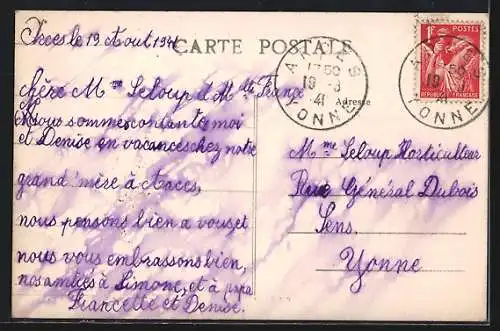 Accès le 19 Aout 1941
CARTE POSTALE
chère Mme Seloup et Mlle France
Nous sommes contante moi
et Denise en vacances chez notre
grand' mère à Accès,
nous pensons bien a vous et
nous vous embrassons bien,
nos amitiés à Simone, et à papa
Francette et Denise.
Adresse
Mme Seloup Horticulteur
Rue Général Dubois
Sens.
Yonne
19 -8
41
YONNE
1F
REPUBLIQUE FRANÇAISE
19
41
YONNE